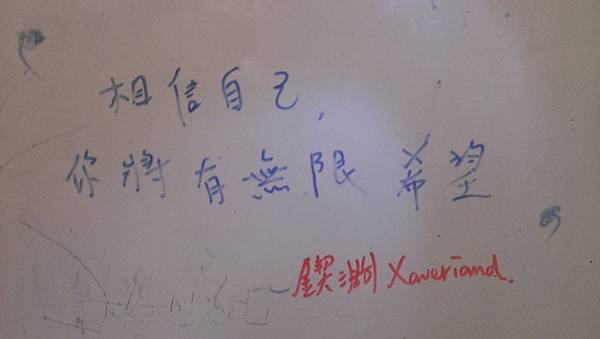 相信自己,
你將有無限希望
Xaveriand.